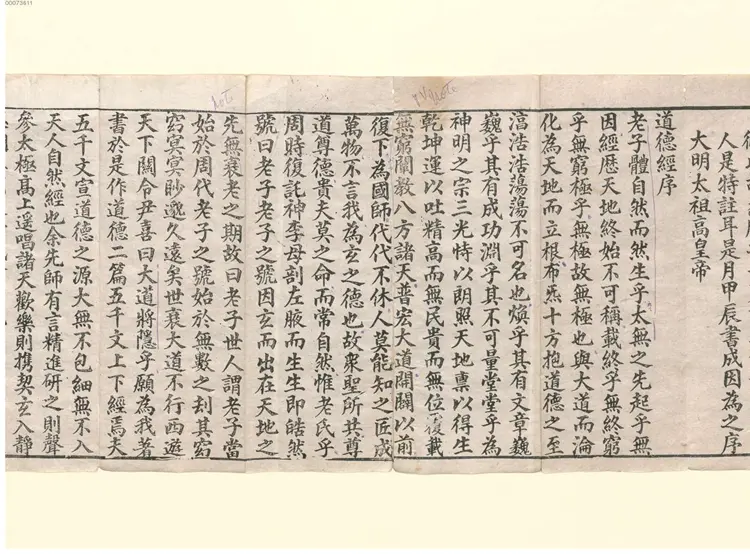 00073611
人是特註耳是月甲辰書成因為之序
大明太祖高皇帝
道德經序
老子體自然而然生乎太無之先起乎無
因經歷天地終始不可稱載終乎無終窮
乎無窮極乎無極故無極也與大道而淪
化為天地而立根布炁十方抱道德之至
淳浩浩蕩蕩不可名也煥乎其有文章巍
巍乎其有成功淵乎其不可量堂堂乎為
神明之宗三光恃以朗照天地稟以得生
乾坤運以吐精高而無民貴而無位覆載
無窮闡教八方諸天普宏大道開闢以前
復下為國師代代不休人莫能知之匠成
萬物不言我為玄之德也故衆聖所共尊
道尊德貴夫莫之命而常自然惟老氏乎
周時復託神李母剖左腋而生生即皓然
號曰老子老子之號因玄而出在天地之
先無衰老之期故曰老子世人謂老子當
始於周代老子之號始於無數之刦其窈
窈冥冥眇邈久遠矣世衰大道不行西遊
天下關令尹喜曰大道將隱乎願為我著
書於是作道德二篇五千文上下經焉夫
五千文宣道德之源大無不包細無不入
天人自然經也余先師有言精進研之則聲
參太極高上遥唱諸天歡樂則携契玄入靜